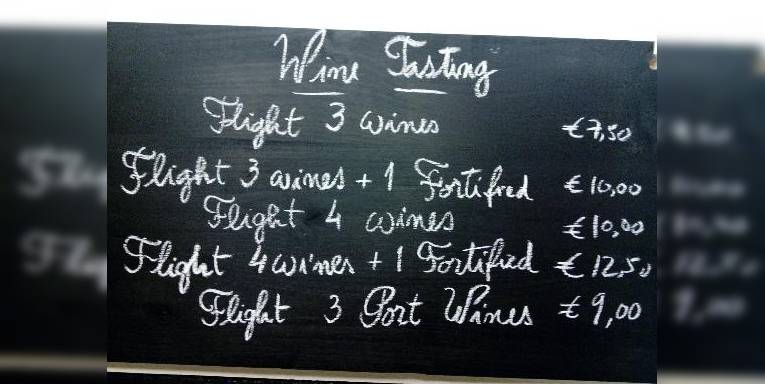 Wine Tasting
Flight 3 wines €7,50
Flight 3 wines + 1 Fortified €10,00
Flight 4 wines €10,00
Flight 4 wines + 1 Fortified €12,50
Flight 3 Port Wines €9,00